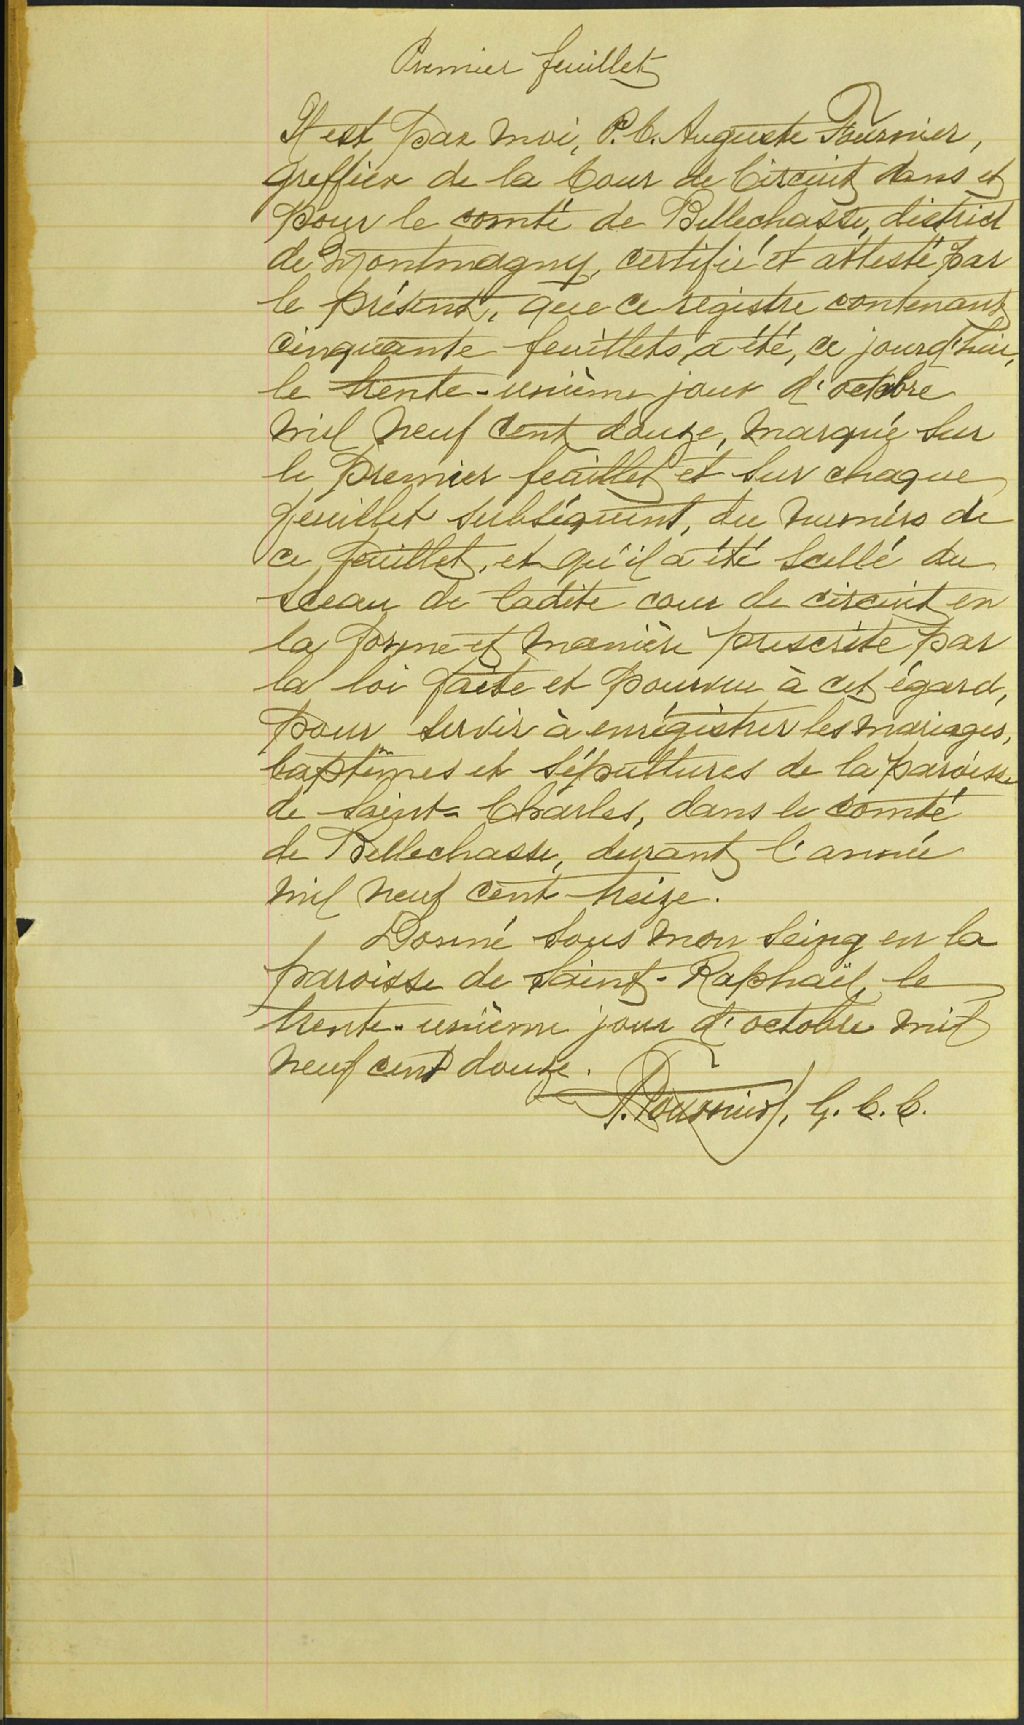 Premier feuillet
Il est par moi, P. C. Auguste Fournier,
greffier de la Cour de Circuit dans et
pour le comté de Bellechasse, district
de Montmagny, certifié et attesté par
le présent, que ce registre contenant
cinquante feuillets, a été, ce jourd'hui,
le trente-unième jour d'octobre
mil neuf cent douze, marqué sur
le premier feuillet et sur chaque
feuillet subséquent, du numéro de
ce feuillet, et qu'il a été scellé du
sceau de ladite cour de circuit en
la forme et manière prescrite par
la loi faite et pourvue à cet égard,
pour servir à enrégistrer les mariages,
baptêmes et sépultures de la paroisse
de Saint-Charles, dans le comté
de Bellechasse, durant l'année
mil neuf cent treize.
Donné sous mon seing en la
paroisse de Saint-Raphaël, le
trente-unième jour d'octobre mil
neuf cent douze.
A. Fournier, G. C. C.